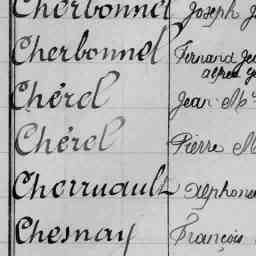 Cherbonnel Joseph
Cherbonnel Fernand
alfred
Chérel Jean M
Chérel Pierre M
Cherruault Alphonse
Chesnay François